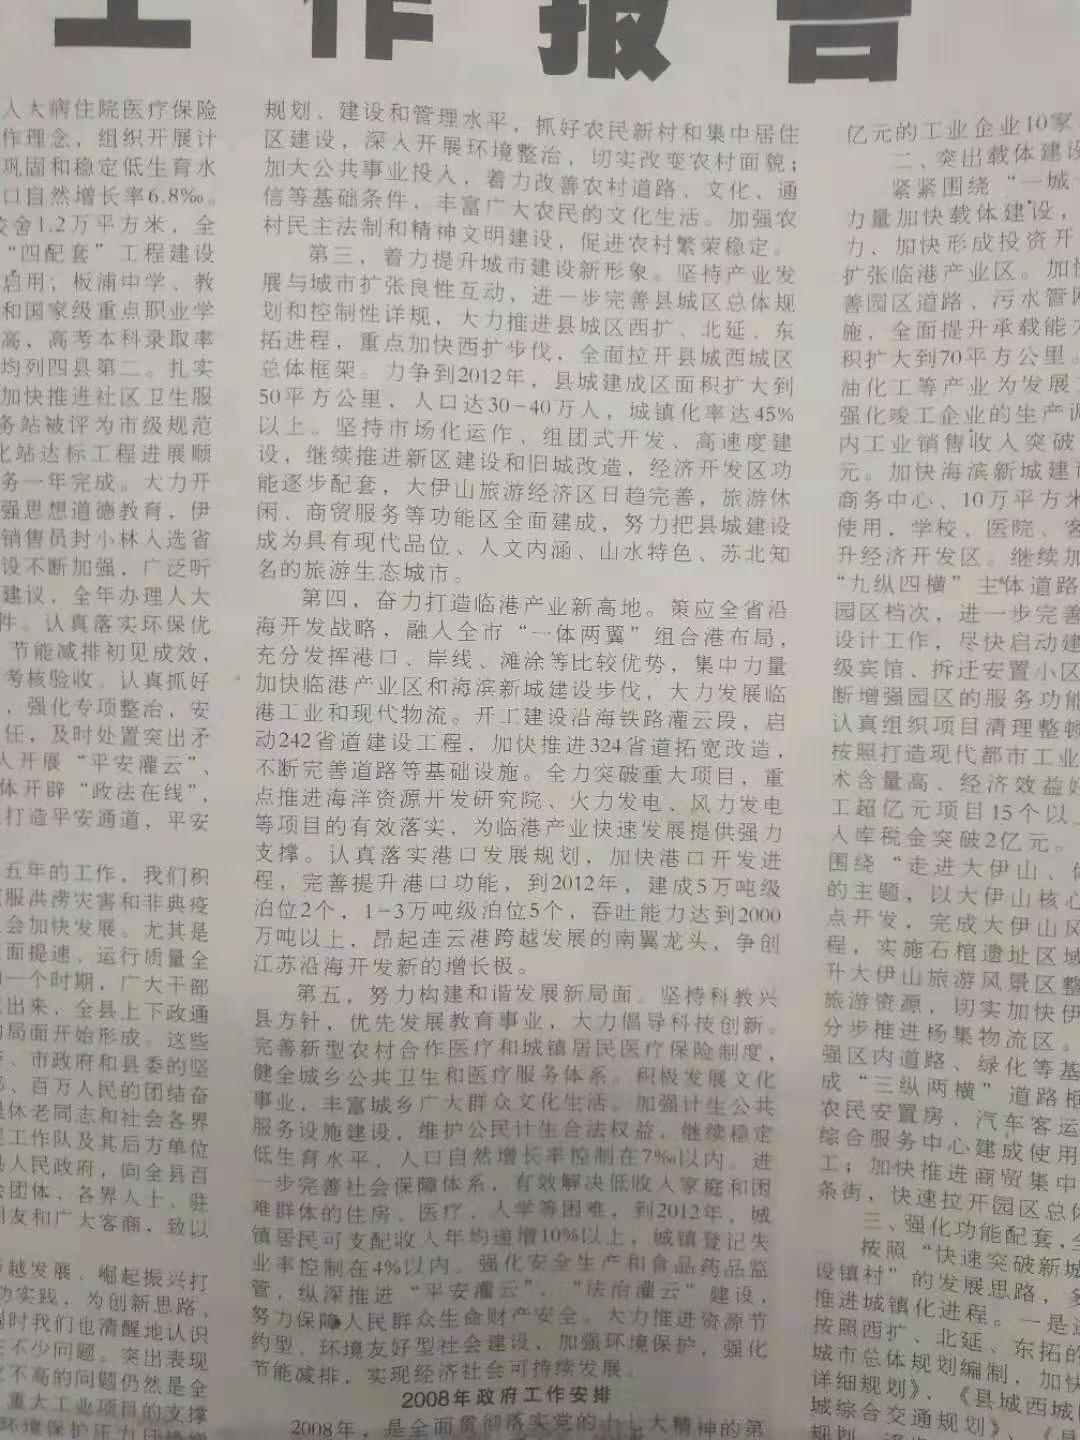 工作报告
人大病住院医疗保险
作理念，组织开展计
巩固和稳定低生育水
口自然增长率6.8‰。
校舍1.2万平方米，全
“四配套”工程建设
启用；板浦中学、教
和国家级重点职业学
高，高考本科录取率
均列四县第二。扎实
加快推进社区卫生服
务站被评为市级规范
化站达标工程进展顺
务一年完成。大力开
强思想道德教育，伊
销售员封小林入选省
设不断加强，广泛听
建议，全年办理人大
件。认真落实环保优
节能减排初见成效，
考核验收。认真抓好
，强化专项整治，安
任，及时处置突出矛
入开展“平安灌云”、
体开辟“政法在线”，
打造平安通道，平安
五年的工作，我们积
服洪涝灾害和非典疫
会加快发展。尤其是
面提速、运行质量全
一个时期，广大干部
出来，全县上下政通
局面开始形成。这些
、市政府和县委的坚
、百万人民的团结奋
休老同志和社会各界
工作队及其后方单位
人民政府，向全县百
团体、各界人士、驻
朋友和广大客商，致以
越发展、崛起振兴打
功实践，为创新思路、
同时我们也清醒地认识
在不少问题。突出表现
不高的问题仍然是全
重大工业项目的支撑
规划、建设和管理水平，抓好农民新村和集中居住
区建设，深入开展环境整治，切实改变农村面貌；
加大公共事业投入，着力改善农村道路、文化、通
信等基础条件，丰富广大农民的文化生活。加强农
村民主法制和精神文明建设，促进农村繁荣稳定。
第三，着力提升城市建设新形象。坚持产业发
展与城市扩张良性互动，进一步完善县城区总体规
划和控制性详规，大力推进县城区西扩、北延、东
拓进程，重点加快西扩步伐，全面拉开县城西城区
总体框架。力争到2012年，县城建成区面积扩大到
50平方公里，人口达30-40万人，城镇化率达45%
以上。坚持市场化运作、组团式开发、高速度建
设，继续推进新区建设和旧城改造，经济开发区功
能逐步配套，大伊山旅游经济区日趋完善，旅游休
闲、商贸服务等功能区全面建成，努力把县城建设
成为具有现代品位、人文内涵、山水特色、苏北知
名的旅游生态城市。
第四，奋力打造临港产业新高地。策应全省沿
海开发战略，融入全市“一体两翼”组合港布局，
充分发挥港口、岸线、滩涂等比较优势，集中力量
加快临港产业区和海滨新城建设步伐，大力发展临
港工业和现代物流。开工建设沿海铁路灌云段，启
动242省道建设工程，加快推进324省道拓宽改造，
不断完善道路等基础设施。全力突破重大项目，重
点推进海洋资源开发研究院、火力发电、风力发电
等项目的有效落实，为临港产业快速发展提供强力
支撑。认真落实港口发展规划，加快港口开发进
程，完善提升港口功能，到2012年，建成5万吨级
泊位2个，1-3万吨级泊位5个，吞吐能力达到2000
万吨以上，昂起连云港跨越发展的南翼龙头，争创
江苏沿海开发新的增长极。
第五，努力构建和谐发展新局面。坚持科教兴
县方针，优先发展教育事业，大力倡导科技创新。
完善新型农村合作医疗和城镇居民医疗保险制度，
健全城乡公共卫生和医疗服务体系。积极发展文化
事业，丰富城乡广大群众文化生活。加强计生公共
服务设施建设，维护公民计生合法权益，继续稳定
低生育水平，人口自然增长率控制在7‰以内。进
一步完善社会保障体系，有效解决低收入家庭和困
难群体的住房、医疗、入学等困难，到2012年，城
镇居民可支配收入年均递增10%以上，城镇登记失
业率控制在4%以内。强化安全生产和食品药品监
管，纵深推进“平安灌云”、“法治灌云”建设，
努力保障人民群众生命财产安全。大力推进资源节
约型、环境友好型社会建设，加强环境保护，强化
节能减排，实现经济社会可持续发展。
2008年政府工作安排
2008年，是全面贯彻落实党的十七大精神的第
亿元的工业企业10家
二、突出载体建设
紧紧围绕“一城
力量加快载体建设，
力、加快形成投资开
扩张临港产业区。加快
善园区道路、污水管网
施，全面提升承载能力
积扩大到70平方公里。
油化工等产业为发展
强化竣工企业的生产调
内工业销售收入突破
元。加快海滨新城建设
商务中心、10万平方米
使用，学校、医院、客
升经济开发区。继续加
“九纵四横”主体道路
园区档次，进一步完善
设计工作，尽快启动建
级宾馆、拆迁安置小区
断增强园区的服务功能
认真组织项目清理整顿
按照打造现代都市工业
术含量高、经济效益好
工超亿元项目15个以上
入库税金突破2亿元。
围绕“走进大伊山、
的主题，以大伊山核心
点开发，完成大伊山风
程，实施石棺遗址区域
升大伊山旅游风景区整
旅游资源，切实加快伊
分步推进杨集物流区。
强区内道路、绿化等基
成“三纵两横”道路框
农民安置房、汽车客运
综合服务中心建成使用
工；加快推进商贸集中
条街，快速拉开园区总体
三、强化功能配套，全
按照“快速突破新城
设镇村”的发展思路，
推进城镇化进程。一是
按照西扩、北延、东拓的
城市总体规划编制，加快
详细规划》、《县城西城
城综合交通规划》、《县